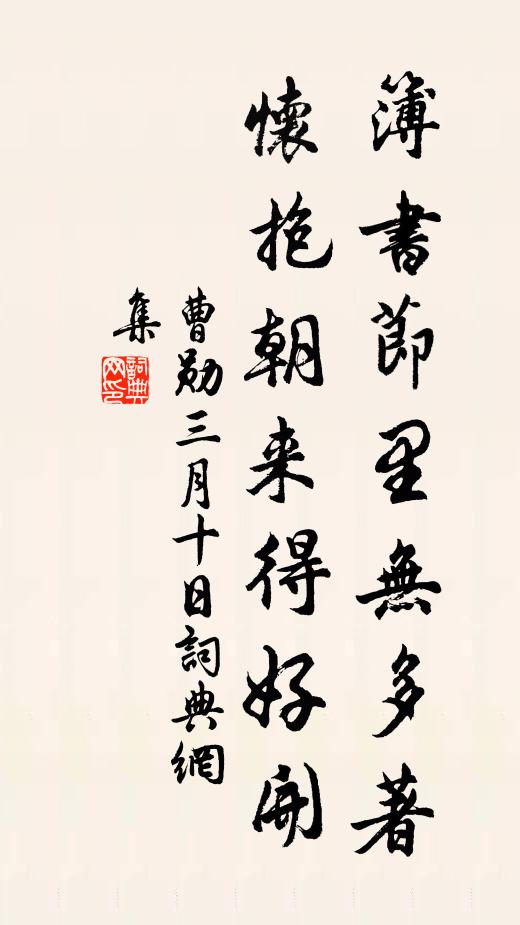 簿書節里無多著
懷抱朝来得好開
曹勛三月十日詞典網
集
詞典
网印